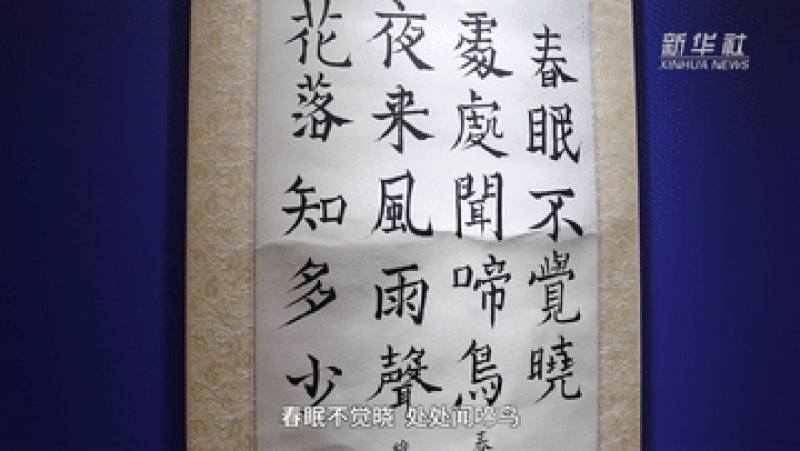 春眠不覺曉
處處聞啼鳥
夜来風雨聲
花落知多少
新华社
XINHUA NEWS
春眠不觉晓 处处闻啼鸟